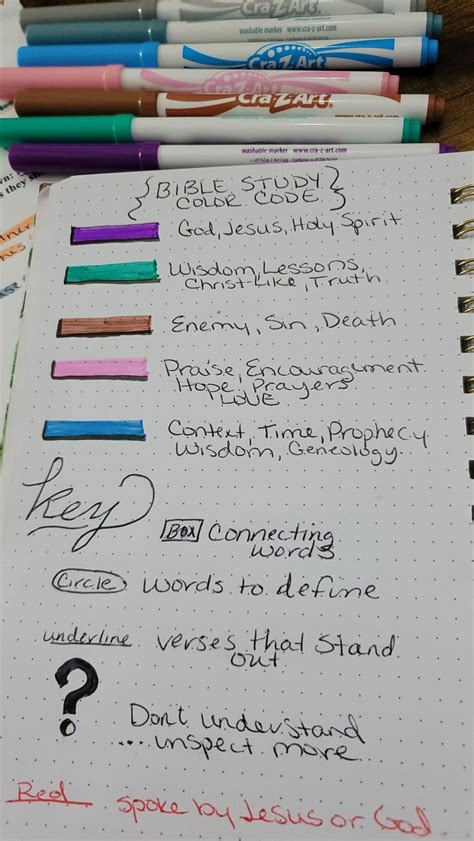 Cra-Z-Art
washable marker www.cra-z-art.com
Cra-Z-Art
Cra-Z-Art
Cra-Z-Art
www.cra-z-art.com
washable marker www.cra-z-art.com
washable marker www.cra-z-art.com
{BIBLE STUDY
COLOR CODE}
God, Jesus, Holy Spirit
Wisdom, Lessons,
Christ-Like, Truth
Enemy, Sin, Death
Praise, Encouragment
Hope, Prayers
LOVE
Context, Time, Prophecy
Wisdom, Geneology
Key
Box Connecting
words
Circle words to define
underline verses that stand
out
? Dont understand
....inspect more
Red spoke by Jesus or God